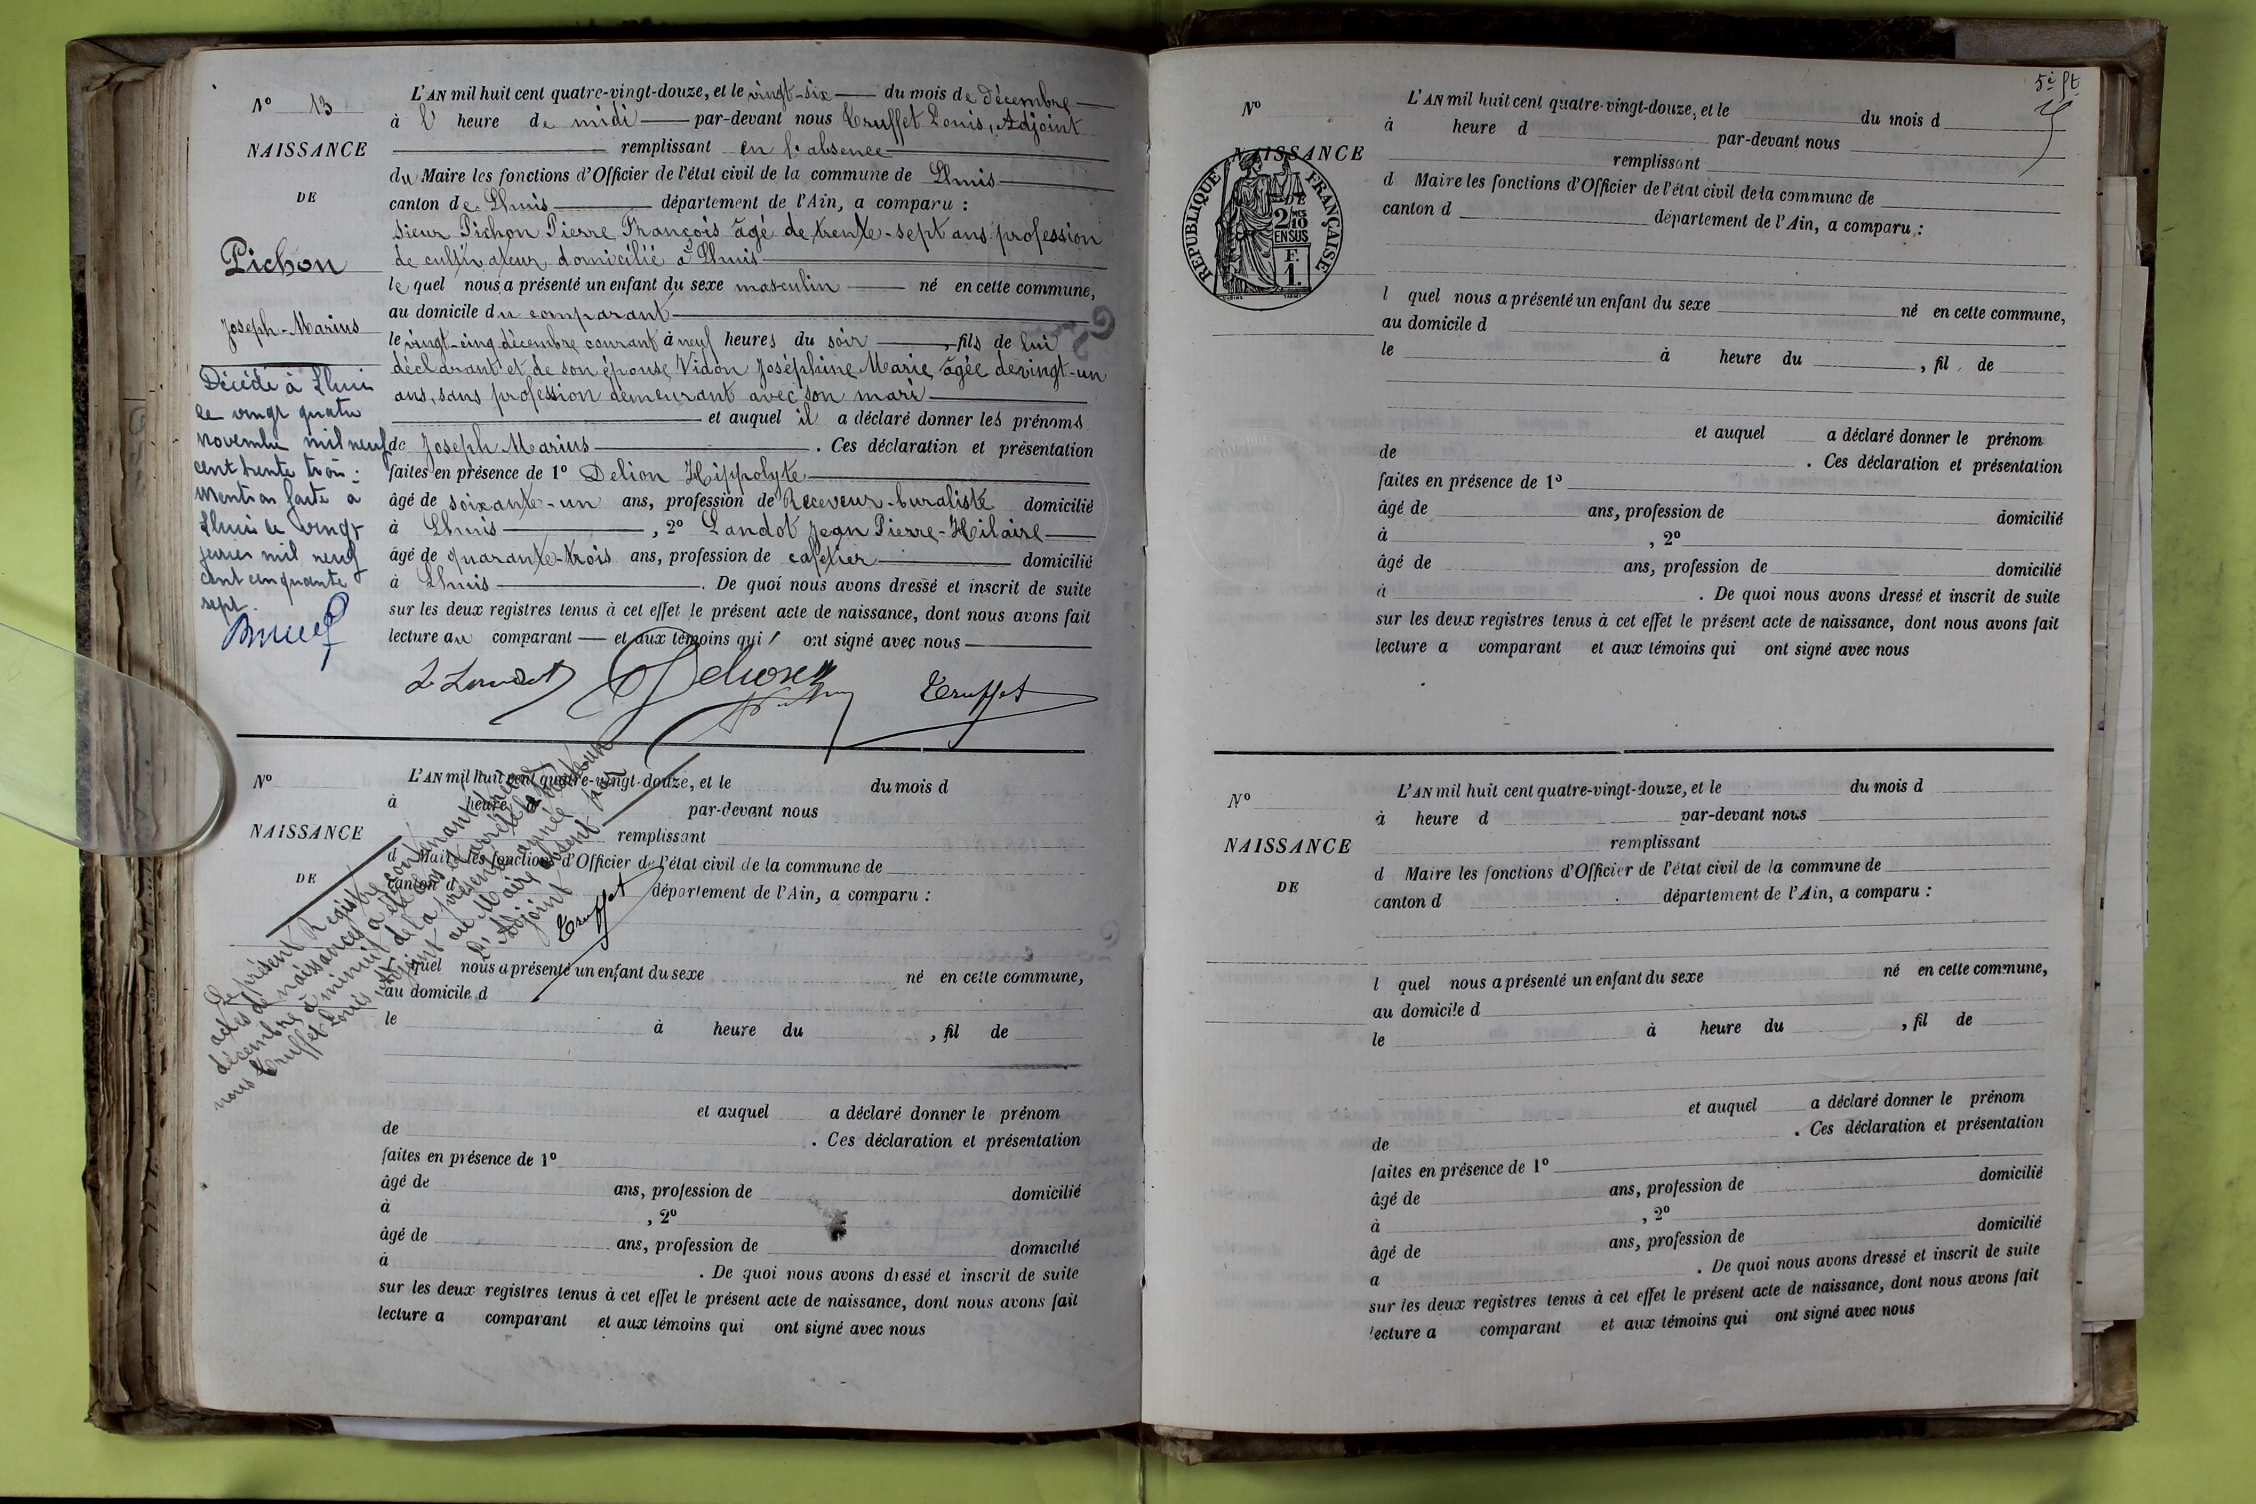 N° 13
NAISSANCE
DE
Pichon
Joseph-Marius
Décédé à Lhuis
le vingt quatre
novembre mil neuf
cent trente trois.
Mention faite à
Lhuis le vingt
janvier mil neuf
cent cinquante
sept.
L'AN mil huit cent quatre-vingt-douze, et le vingt-six du mois de décembre
à l' heure de midi par-devant nous Truffet Louis, Adjoint
remplissant en l'absence
du Maire les fonctions d'Officier de l'état civil de la commune de Lhuis
canton de Lhuis département de l'Ain, a comparu :
sieur Pichon Pierre François âgé de trente-sept ans profession
de cultivateur domicilié à Lhuis
le quel nous a présenté un enfant du sexe masculin né en cette commune,
au domicile du comparant
le vingt-cinq décembre courant à neuf heures du soir, fils de lui
déclarant et de son épouse Vidon Joséphine Marie, âgée de vingt-un
ans, sans profession demeurant avec son mari
et auquel il a déclaré donner les prénoms
de Joseph Marius. Ces déclaration et présentation
faites en présence de 1° Delion Hippolyte
âgé de soixante-un ans, profession de Receveur-buraliste domicilié
à Lhuis, 2° Landot Jean Pierre-Hilaire
âgé de quarante-trois ans, profession de cafetier domicilié
à Lhuis. De quoi nous avons dressé et inscrit de suite
sur les deux registres tenus à cet effet le présent acte de naissance, dont nous avons fait
lecture au comparant et aux témoins qui ont signé avec nous
Delion
Truffet
N°
NAISSANCE
DE
L'AN mil huit cent quatre-vingt-douze, et le du mois d
à heure d par-devant nous
remplissant
d Maire les fonctions d'Officier de l'état civil de la commune de
canton d département de l'Ain, a comparu :
quel nous a présenté un enfant du sexe né en cette commune,
au domicile d
le à heure du , fil de
et auquel a déclaré donner le prénom
de . Ces déclaration et présentation
faites en présence de 1°
âgé de ans, profession de domicilié
à , 2°
âgé de ans, profession de domicilié
à . De quoi nous avons dressé et inscrit de suite
sur les deux registres tenus à cet effet le présent acte de naissance, dont nous avons fait
lecture a comparant et aux témoins qui ont signé avec nous
Le présent Registre contenant treize
actes de naissances a été clos et arrêté le
décembre à minuit de la présente année par
nous Truffet Louis adjoint au Maire absent
L'Adjoint
Truffet
5e ft
N°
NAISSANCE
RÉPUBLIQUE FRANÇAISE
DE
2/10
EN SUS
F.
1.
L'AN mil huit cent quatre-vingt-douze, et le du mois d
à heure d par-devant nous
remplissant
d Maire les fonctions d'Officier de l'état civil de la commune de
canton d département de l'Ain, a comparu :
l quel nous a présenté un enfant du sexe né en cette commune,
au domicile d
le à heure du , fil de
et auquel a déclaré donner le prénom
de . Ces déclaration et présentation
faites en présence de 1°
âgé de ans, profession de domicilié
à , 2°
âgé de ans, profession de domicilié
à . De quoi nous avons dressé et inscrit de suite
sur les deux registres tenus à cet effet le présent acte de naissance, dont nous avons fait
lecture a comparant et aux témoins qui ont signé avec nous
N°
NAISSANCE
DE
L'AN mil huit cent quatre-vingt-douze, et le du mois d
à heure d par-devant nous
remplissant
d Maire les fonctions d'Officier de l'état civil de la commune de
canton d département de l'Ain, a comparu :
l quel nous a présenté un enfant du sexe né en cette commune,
au domicile d
le à heure du , fil de
et auquel a déclaré donner le prénom
de . Ces déclaration et présentation
faites en présence de 1°
âgé de ans, profession de domicilié
à , 2°
âgé de ans, profession de domicilié
a . De quoi nous avons dressé et inscrit de suite
sur les deux registres tenus à cet effet le présent acte de naissance, dont nous avons fait
lecture a comparant et aux témoins qui ont signé avec nous